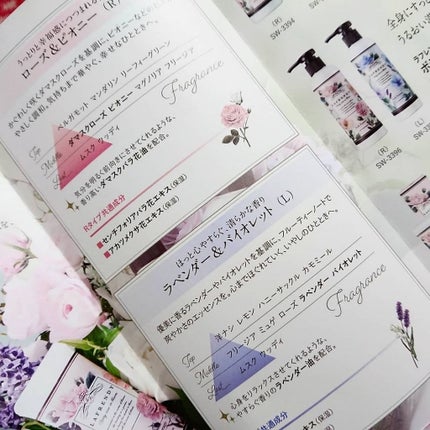 うっとりと幸福感につつまれる
ローズ&ピオニー (R)
かぐわしく咲くダマスクローズを基調にピオニーなどの
やさしく調和。気持ちまで華やぐ、幸せなひとときへ。
Fragrance
Top
ベルガモット マンダリン リーフィグリーン
Middle
ダマスクローズ ピオニー マグノリア フリージア
Last
ムスク ウッディ
気分を明るく前向きにさせてくれるような、
香り高いダマスクバラ花油を配合。
Rタイプ共通成分
■センチフォリアバラ花エキス(保湿)
■アカツメクサ花エキス(保湿)
ほっと心やすらぐ、清らかな香り
ラベンダー&バイオレット (L)
優美に香るラベンダーやバイオレットを基調に、フルーティーノートで
爽やかさのエッセンスを。心までほぐれていく、いやしのひとときへ。
Fragrance
Top
洋ナシ レモン ハニーサックル カモミール
Middle
フリージア ミュゲ ローズ ラベンダー バイオレット
Last
ムスク ウッディ
心身をリラックスさせてくれるような、
やすらぐ香りのラベンダー油を配合。
共通成分
キス(保湿)
SW-3394
全身にすっ
うるおい
(R)
SW-3396
(L)